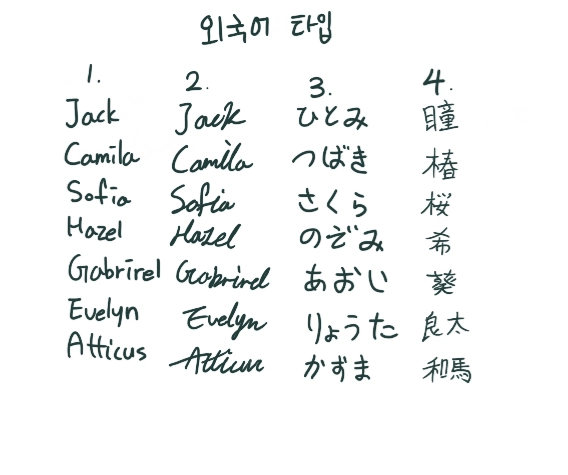 외국어 타입
1. 2. 3. 4.
Jack Jack ひとみ 瞳
Camila Camila つばき 椿
Sofia Sofia さくら 桜
Hazel Hazel のぞみ 希
Gabrirel Gabrirel あおい 葵
Evelyn Evelyn りょうた 良太
Atticus Atticus かずま 和馬